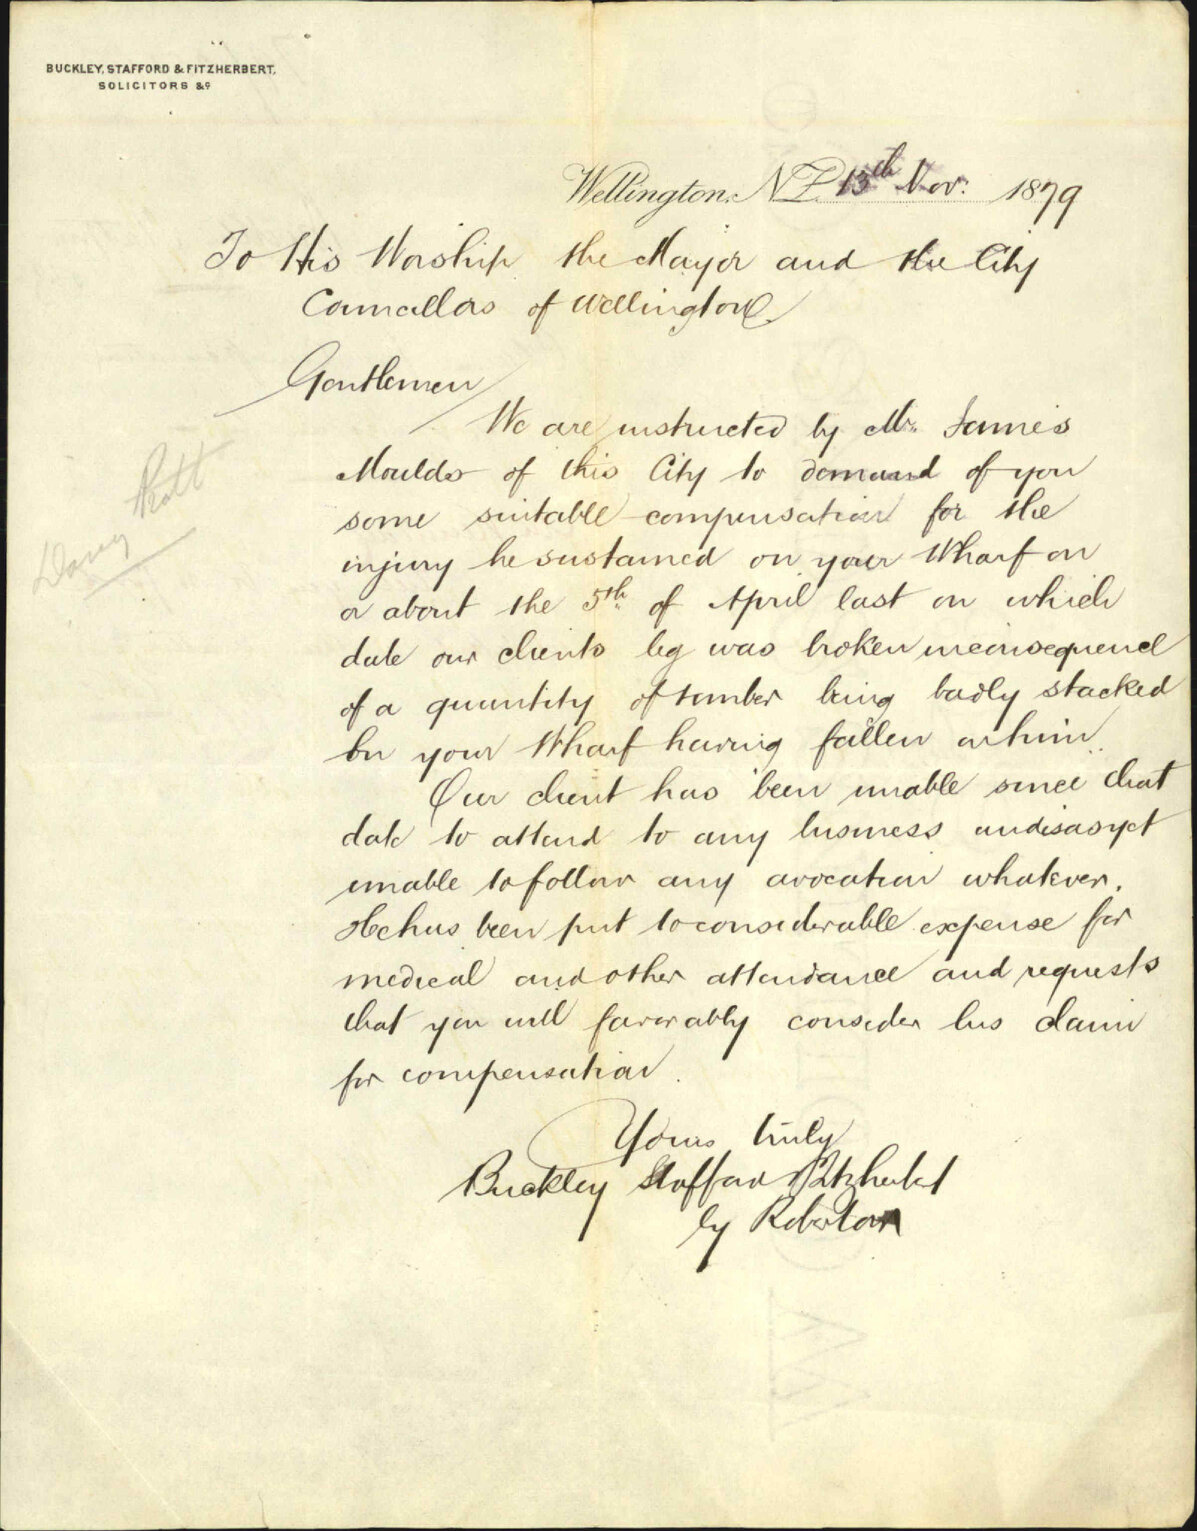 BUCKLEY, STAFFORD & FITZHERBERT,
SOLICITORS &c
Wellington, N.Z. 13th Nov: 1879
To His Worship the Mayor and the City
Councillors of Wellington
Gentlemen
We are instructed by Mr. James
Moulds of this City to demand of you
some suitable compensation for the
injury he sustained on your Wharf on
or about the 5th of April last on which
date our clients leg was broken in consequence
of a quantity of timber being badly stacked
on your Wharf having fallen on him.
Our client has been unable since that
date to attend to any business and is as yet
unable to follow any avocation whatever.
He has been put to considerable expense for
medical and other attendance and requests
that you will favorably consider his claim
for compensation.
Yours truly
Buckley Stafford & Fitzherbert
by